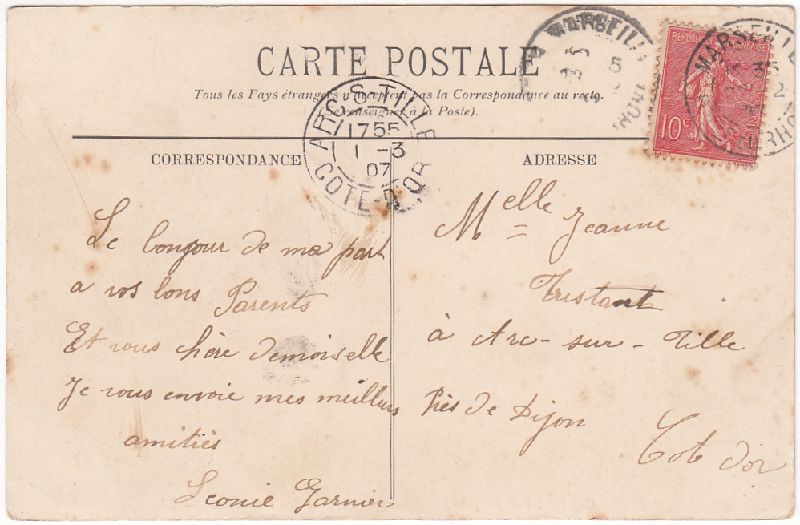 CARTE POSTALE
Tous les Pays étrangers n'acceptent pas la Correspondance au recto.
(Se renseigner à la Poste).
CORRESPONDANCE
ADRESSE
ARC-S-TILLE
1755
1 -3
07
COTE-D'OR
MARSEILLE
MARSEILLE
RÉPUBLIQUE FRANÇAISE
10c
Le bonjour de ma part
a vos bons Parents
Et vous chère demoiselle
Je vous envoie mes meillurs
amitiés
Leonie Garnier
Melle Jeanne
Tristant
à Arc-sur-Tille
Près de Dijon
Cote d'or